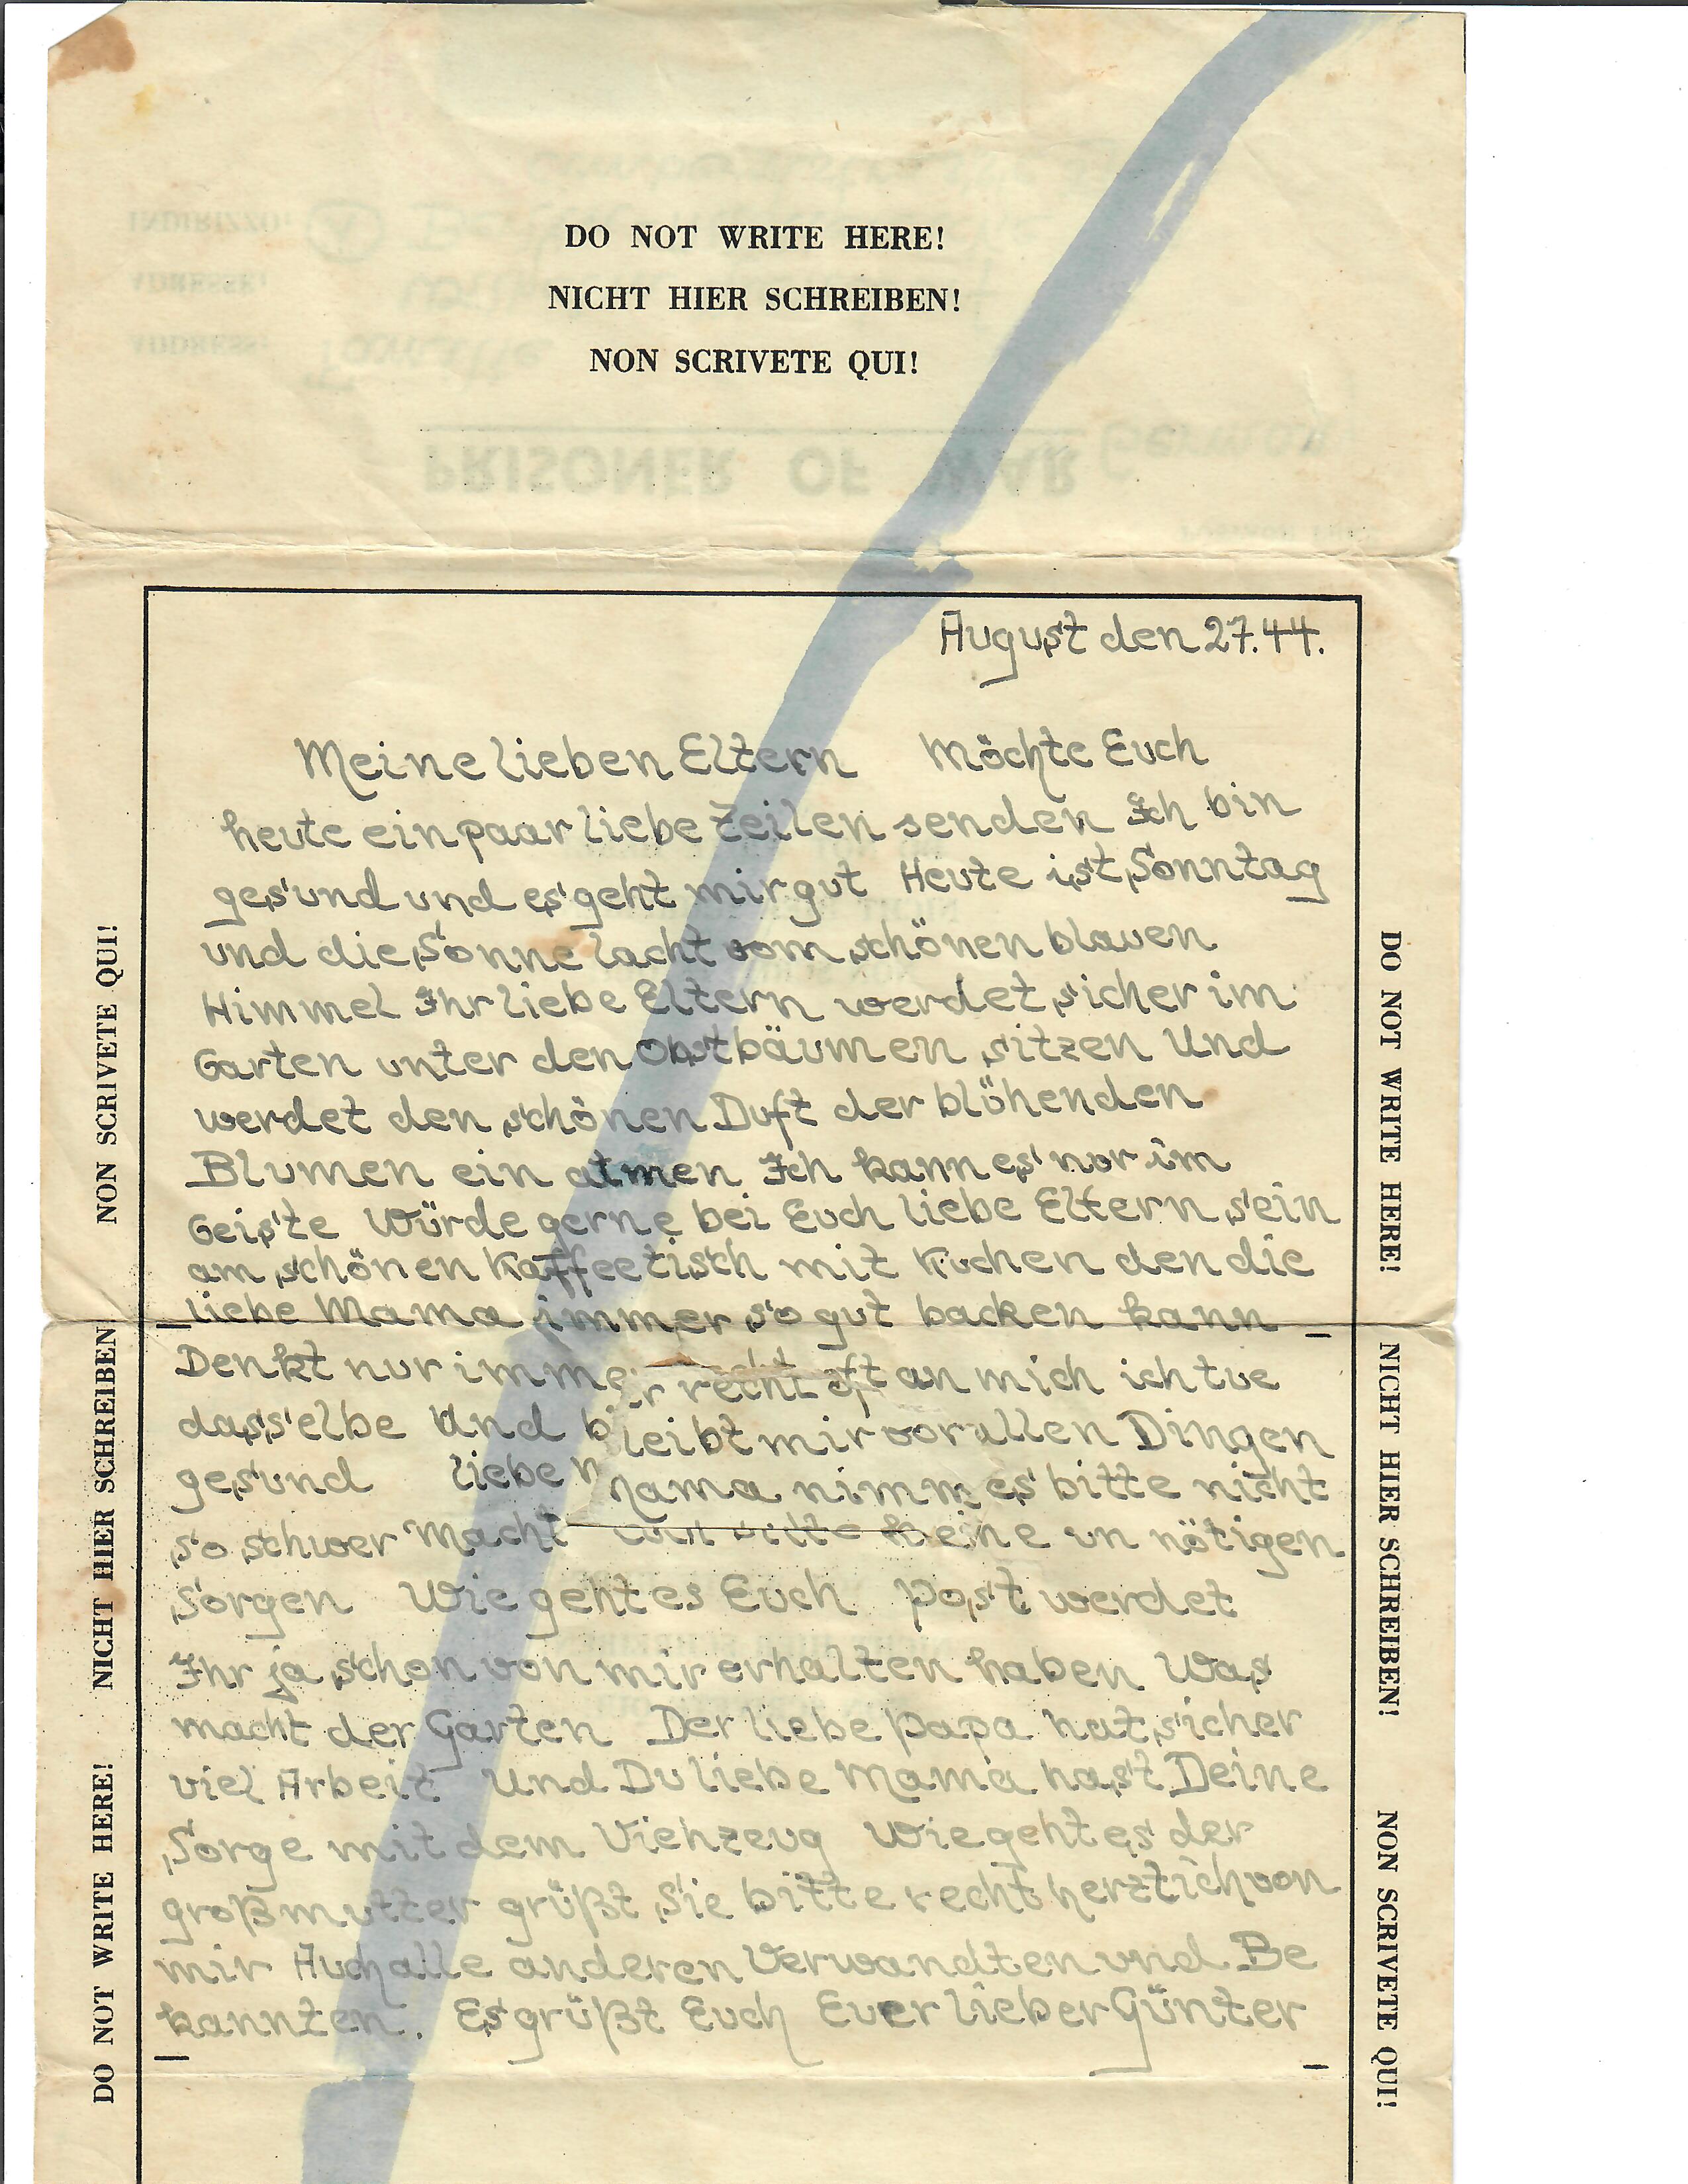 DO NOT WRITE HERE!
NICHT HIER SCHREIBEN!
NON SCRIVETE QUI!
PRISONER OF WAR German
ADDRESS:
ADRESSE:
INDIRIZZO:
August den 27.44.
Meine lieben Eltern Möchte Euch
heute ein paar liebe Zeilen senden Ich bin
gesund und es geht mir gut Heute ist Sonntag
und die Sonne lacht vom schönen blauen
Himmel Ihr liebe Eltern werdet sicher im
Garten unter den Obstbäumen sitzen Und
werdet den schönen Duft der blühenden
Blumen ein atmen Ich kann es nur im
Geiste Würde gerne bei Euch liebe Eltern sein
am schönen Kaffeetisch mit Kuchen den die
liebe Mama immer so gut backen kann
Denkt nur immer recht oft an mich ich tue
dasselbe Und bleibt mir vor allen Dingen
gesund liebe Mama nimm es bitte nicht
so schwer Macht bitte keine un nötigen
Sorgen Wie geht es Euch Post werdet
Ihr ja schon von mir erhalten haben Was
macht der Garten Der liebe Papa hat sicher
viel Arbeit Und Du liebe Mama hast Deine
Sorge mit dem Viehzeug Wie geht es der
großmutter grüßt Sie bitte recht herzlich von
mir Auch alle anderen Verwandten und Be
kannten. Es grüßt Euch Euer lieber Günter
NON SCRIVETE QUI!
NICHT HIER SCHREIBEN
DO NOT WRITE HERE!
DO NOT WRITE HERE!
NICHT HIER SCHREIBEN!
NON SCRIVETE QUI!